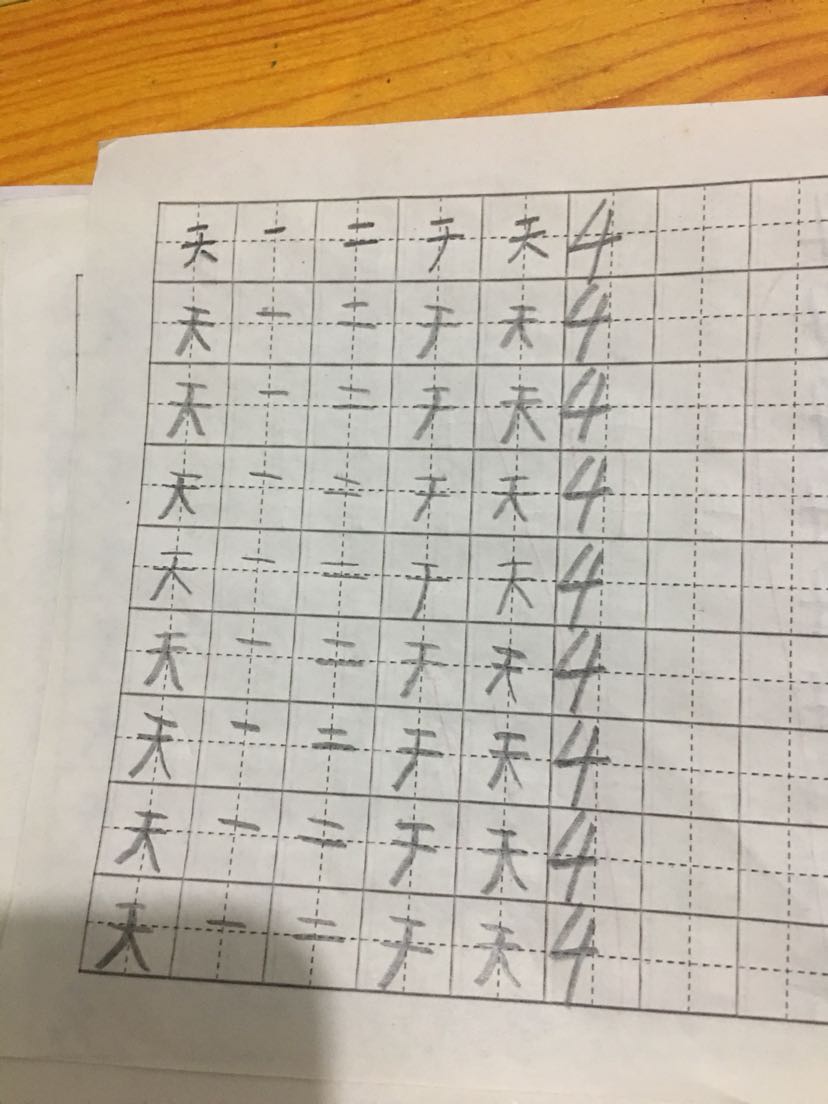 天 一 二 チ 天 4
天 一 二 チ 天 4
天 一 二 チ 天 4
天 一 二 チ 天 4
天 一 二 チ 天 4
天 一 二 チ 天 4
天 一 二 チ 天 4
天 一 二 チ 天 4
天 一 二 チ 天 4